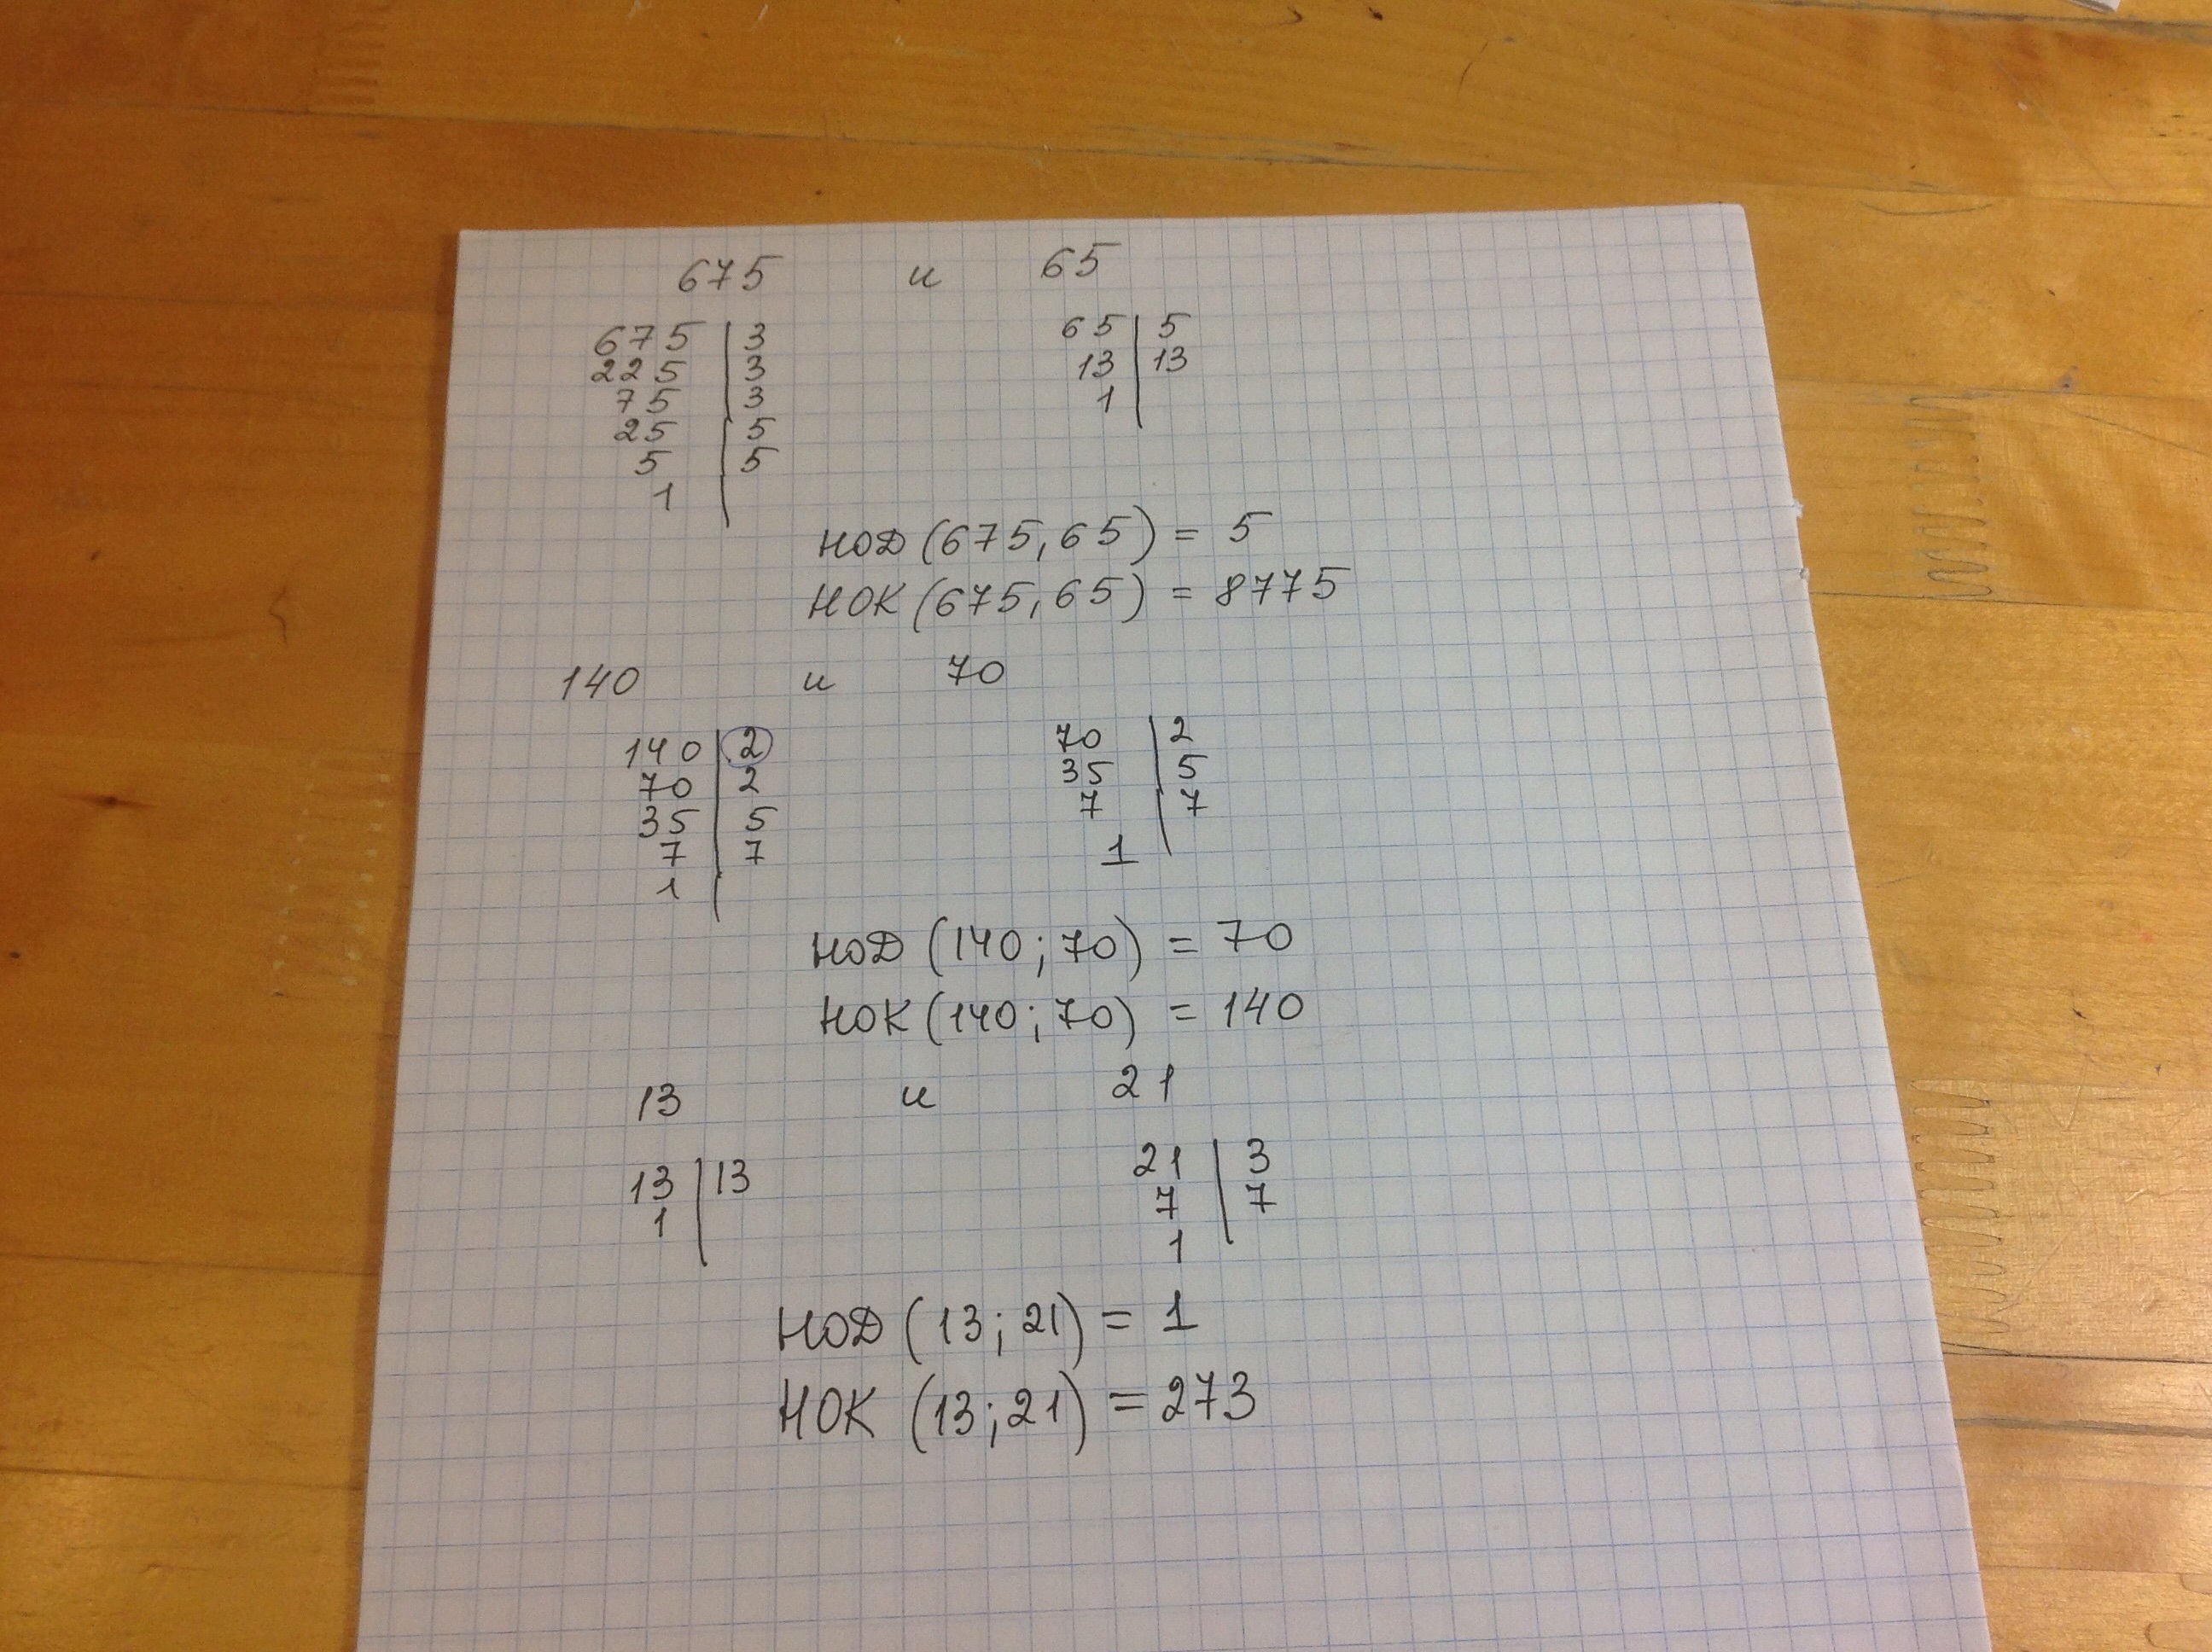 675 и 65
675 | 3 65 | 5
225 | 3 13 | 13
75 | 3 1 |
25 | 5
5 | 5
1 |
НОД (675, 65) = 5
НОК (675, 65) = 8775
140 и 70
140 | 2 70 | 2
70 | 2 35 | 5
35 | 5 7 | 7
7 | 7 1 |
1 |
НОД (140; 70) = 70
НОК (140; 70) = 140
13 и 21
13 | 13 21 | 3
1 | 7 | 7
1
НОД (13; 21) = 1
НОК (13; 21) = 273